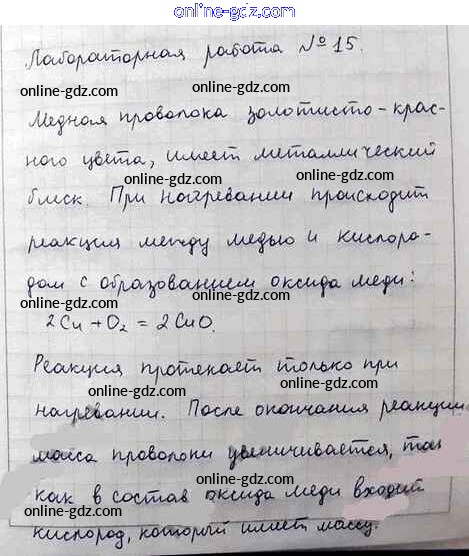 online-gdz.com
Лабораторная работа № 15.
online-gdz.com
online-gdz.com
Медная проволока золотисто-крас-
online-gdz.com
ного цвета, имеет металлический
online-gdz.com
блеск. При нагревании происходит
online-gdz.com
реакция между медью и кислоро-
online-gdz.com
дом с образованием оксида меди:
online-gdz.com
2Cu + O₂ = 2CuO.
online-gdz.com
Реакция протекает только при
online-gdz.com
нагревании. После окончания реакции
online-gdz.com
масса проволоки увеличивается, так
online-gdz.com
как в состав оксида меди входит
online-gdz.com
кислород, который имеет массу.
online-gdz.com